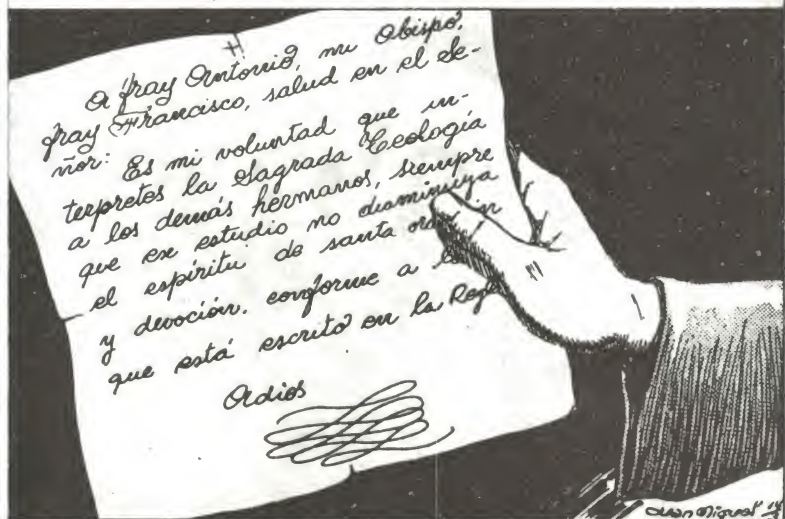 A fray Antonio, mi Obispo,
fray Francisco, salud en el Se-
ñor: Es mi voluntad que in-
terpretes la Sagrada Teología
a los demás hermanos, siempre
que ese estudio no disminuya
el espíritu de santa
y devoción, conforme a
que está escrito en la
Adios
Juan Miguel